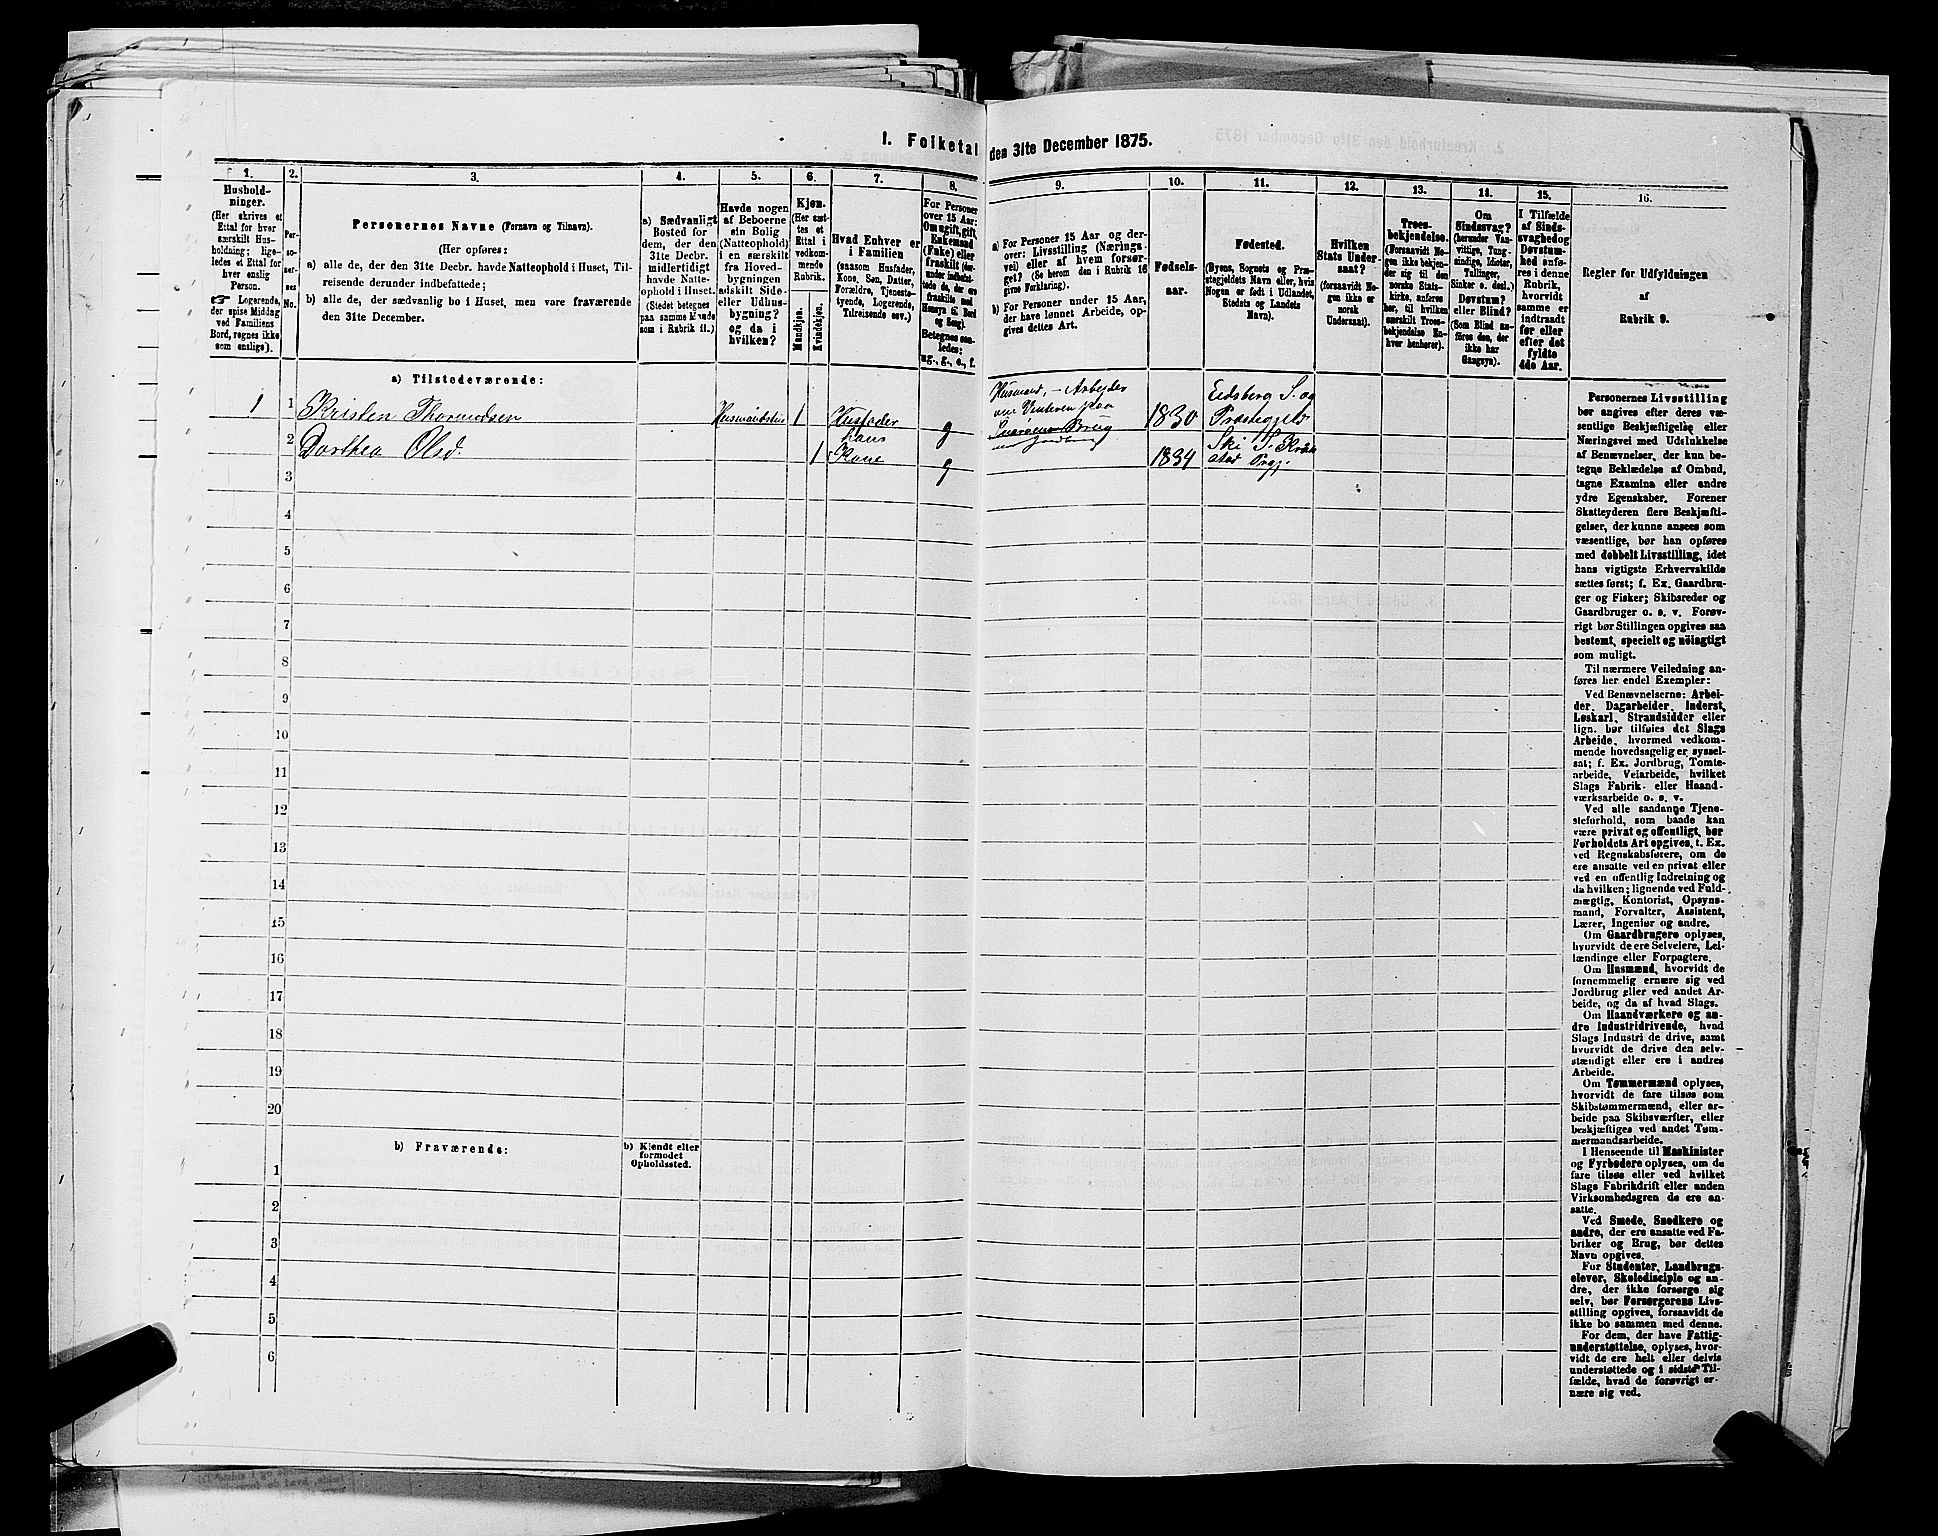 1. Folketal den 31te December 1875.
1.
Hushold-
ninger.
(Her skrives et
Ettal for hver
særskilt Hus-
holdning; lige-
ledes et Ettal for
hver enslig
Person.
☞ Logerende,
der spise Middag
ved Familiens
Bord, regnes ikke
som enslige).
2.
Per-
so-
ner-
nes
No.
3.
Personernes Navne (Fornavn og Tilnavn).
(Her opføres:
a) alle de, der den 31te Decbr. havde Natteophold i Huset, Til-
reisende derunder indbefattede;
b) alle de, der sædvanlig bo i Huset, men vare fraværende
den 31te December.
4.
a) Sædvanligt
Bosted for
dem, der den
31te Decbr.
midlertidigt
havde Natte-
ophold i Huset.
(Stedet betegnes
paa samme Maade
som i Rubrik 11.)
5.
Havde nogen
af Beboerne
sin Bolig
(Natteophold)
i en særskilt
fra Hoved-
bygningen
adskilt Side-
eller Udhus-
bygning?
og da i
hvilken?
6.
Kjøn.
(Her sæt-
tes et
Ettal i
vedkom-
mende
Rubrik.
Mandkjøn.
Kvindekjøn.
7.
Hvad Enhver er
i Familien
(saasom Husfader,
Kone, Søn, Datter,
Forældre, Tjeneste-
tyende, Logerende,
Tilreisende osv.)
8.
For Personer
over 15 Aar:
Om ugift, gift,
Enkemand
(Enke) eller
fraskilt (der-
under indbefat-
tede de, der ere
fraskilte med
Hensyn til Bord
og Seng).
Betegnes saa-
ledes:
ug., g., e., f.
9.
a) For Personer 15 Aar og der-
over: Livsstilling (Nærings-
vei) eller af hvem forsør-
get? (Se herom den i Rubrik 16
givne Forklaring).
b) For Personer under 15 Aar,
der have lønnet Arbeide, op-
gives dettes Art.
10.
Fødsels-
aar.
11.
Fødested.
(Byens, Sognets og Præ-
stegjeldets Navn eller, hvis
Nogen er født i Udlandet,
Stedets og Landets
Navn).
12.
Hvilken
Stats Under-
saat?
(forsaavidt No-
gen ikke er
norsk
Undersaat).
13.
Troes-
bekjendelse.
(Forsaavidt No-
gen ikke bekjen-
der sig til den
norske Stats-
kirke, anføres
her, til hvilken
særskilt Troes-
bekjendelse En-
hver henhører).
14.
Om
Sindssvag?
(herunder Van-
vittige, Tung-
sindige, Idioter,
Tullinger,
Sinker o. desl.)
Døvstum?
eller Blind?
(Som Blind an-
føres den, der
ikke har
Gangsyn).
15.
I Tilfælde
af Sinds-
svaghed og
Døvstum-
hed anfø-
res i denne
Rubrik,
hvorvidt
samme er
indtraadt
før eller
efter det
fyldte
4de Aar.
16.
Regler for Udfyldningen
af
Rubrik 9.
a) Tilstedeværende:
1 1 Kristen Thormodsen Husmandsstue 1 Husfader g
Husmand, - Arbejder
om Vinteren paa
Brug
1830
Eidsberg S. og
Præstegjeld
2 Dorthea Olsd. 1 hans
Kone g 1834
Ski S. Kraa
stad Prgj.
3
4
5
6
7
8
9
10
11
12
13
14
15
16
17
18
19
20
b) Fraværende:
b) Kjendt eller
formodet
Opholdssted.
1
2
3
4
5
6
Personernes Livsstilling
bør angives efter deres væ-
sentlige Beskjæftigelse eller
Næringsvei med Udelukkelse
af Benævnelser, der kun be-
tegne Beklædelse af Ombud,
tagne Examina eller andre
ydre Egenskaber. Forener
Skatteyderen flere Beskjæfti-
gelser, der kunne ansees som
væsentlige, bør han opføres
med dobbelt Livsstilling, idet
hans vigtigste Erhvervskilde
sættes først; f. Ex. Gaardbru-
ger og Fisker; Skibsreder og
Gaardbruger o. s. v. Forøv-
rigt bør Stillingen opgives saa
bestemt, specielt og nöiagtigt
som muligt.
Til nærmere Veiledning an-
føres her endel Exempler:
Ved Benævnelserne: Arbei-
der, Dagarbeider, Inderst,
Løskarl, Strandsidder eller
lign. bør tilføies det Slags
Arbeide, hvormed vedkom-
mende hovedsagelig er syssel-
sat; f. Ex. Jordbrug, Tomte-
arbeide, Veiarbeide, hvilket
Slags Fabrik- eller Haand-
værksarbeide o. s. v.
Ved alle saadanne Tjene-
steforhold, som baade kan
være privat og offentligt, bør
Forholdets Art opgives, t. Ex.
ved Regnskabsførere, om de
ere ansatte ved en privat eller
ved en offentlig Indretning og
da hvilken; lignende ved Fuld-
mægtig, Kontorist, Opsyns-
mand, Forvalter, Assistent,
Lærer, Ingeniør og andre.
Om Gaardbrugere oplyses,
hvorvidt de ere Selveiere, Lei-
lændinge eller Forpagtere.
Om Husmænd, hvorvidt de
fornemmelig ernære sig ved
Jordbrug eller ved andet Ar-
beide, og da af hvad Slags.
Om Haandværkere og an-
dre Industridrivende, hvad
Slags Industri de drive, samt
hvorvidt de drive den selv-
stændigt eller ere i andres
Arbeide.
Om Tømmermænd oplyses,
hvorvidt de fare tilsøs som
Skibstømmermænd, eller ar-
beide paa Skibsværfter, eller
beskjæftiges ved andet Tøm-
mermandsarbeide.
I Henseende til Maskinister
og Fyrbødere oplyses, om de
fare tilsøs eller ved hvilket
Slags Fabrikdrift eller anden
Virksomhedsgren de ere an-
satte.
Ved Smede, Snedkere og
andre, der ere ansatte ved Fa-
briker og Brug, bør dettes
Navn opgives.
For Studenter, Landbrugs-
elever, Skoledisciple og an-
dre, der ikke forsørge sig
selv, bør Forsørgerens Livs-
stilling opgives, forsaavidt de
ikke bo sammen med denne.
For dem, der have Fattig-
understøttelse, oplyses, hvor-
vidt de ere helt eller delvis
understøttede og i sidste Til-
fælde, hvad de forøvrigt er-
nære sig ved.